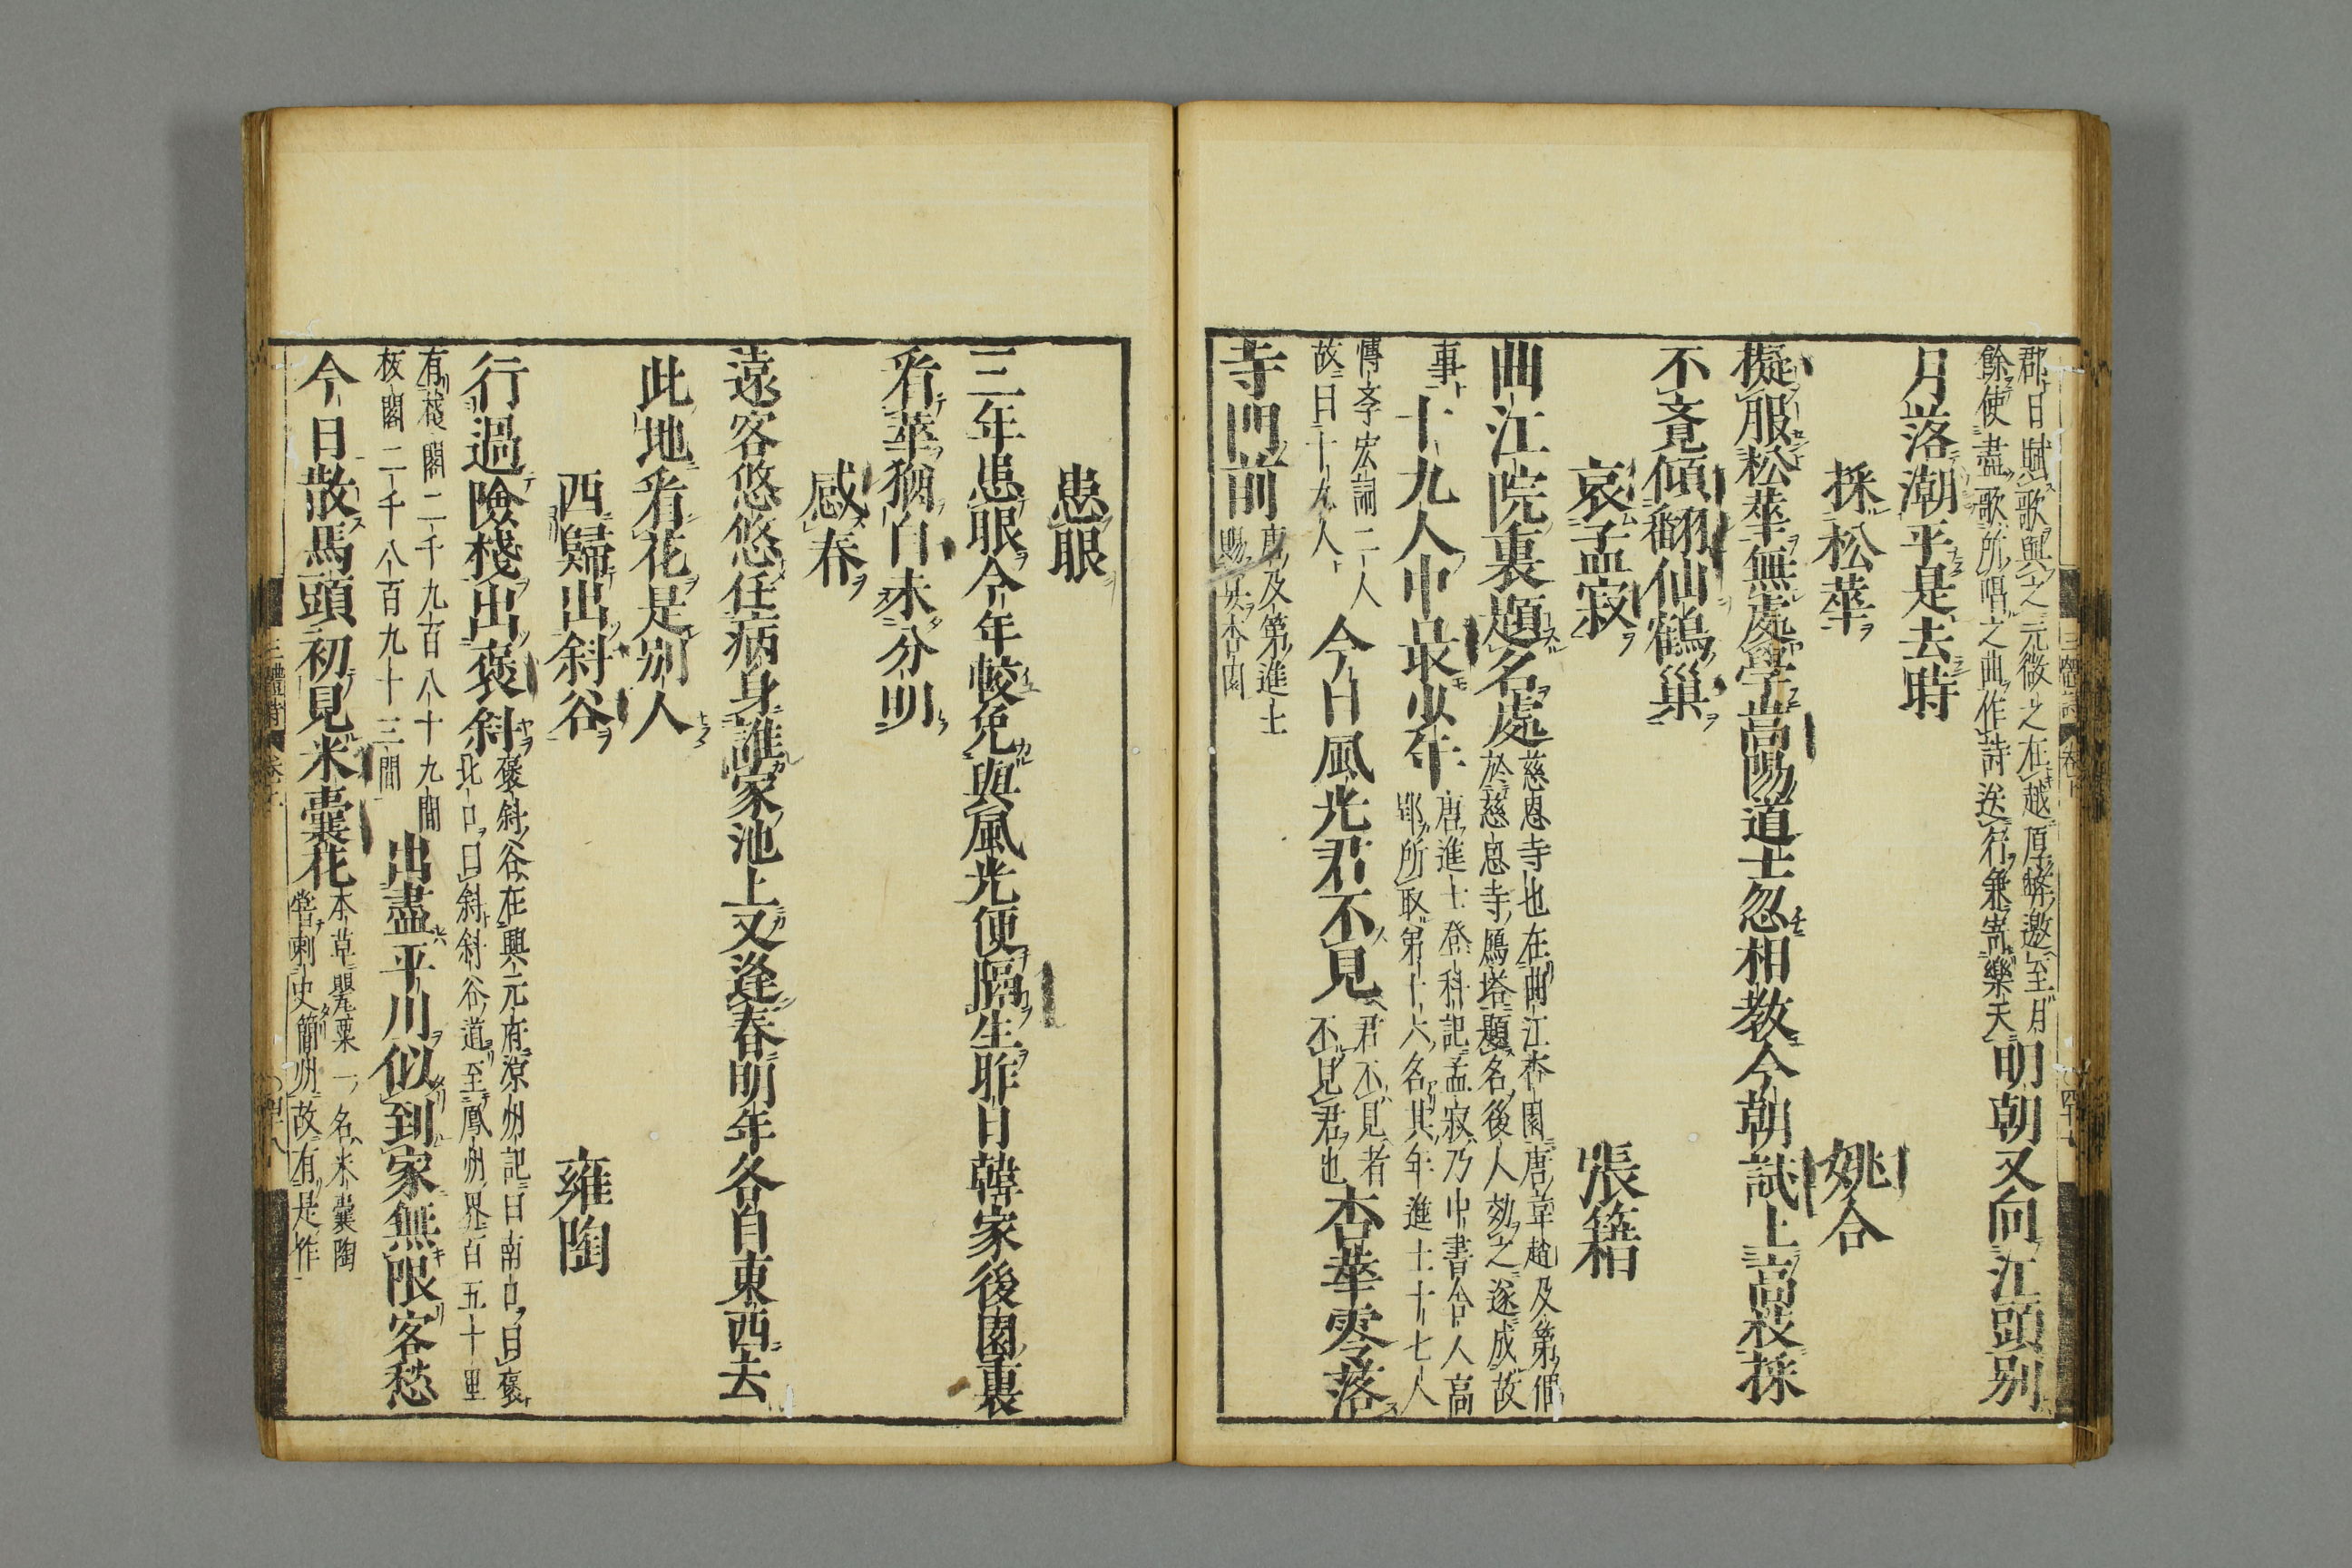 郡日賦歌與之元微之在越厚幣邀至月
餘使盡歌所唱之曲作詩送行兼寄樂天
明朝又向江頭別
月落潮平是去時
採松華
姚合
擬服松華無處學嵩陽道士忽相教今朝試上高枝採
不覺傾翻仙鶴巢
哀孟寂
張籍
曲江院裏題名處
慈恩寺也在曲江杏園唐韋
及第個
於慈恩寺鴈塔題名後人効之遂成故
事
十九人中最少年
唐進士登科記孟寂乃中書舍人高
郢所取第十六名其年進士十七人
博
宏詞二人
故曰十九人
今日風光君不見
君不見者
不見君也
杏華零落
寺門前
唐及第進士
賜
杏園
患眼
三年患眼今年較免與風光便隔生昨日韓家後園裏
看華猶自未分明
感春
遠客悠悠任病身誰家池上又逢春明年各自東西去
此地看花是別人
西歸出斜谷
雍陶
行過險棧出褒斜
褒斜谷在興元府涼州記曰南口曰褒
北口曰斜斜谷道至鳳州界百五十里
有棧閣二千九百八十九間
板閣二千八百九十三間
出盡平川似到家無限客愁
今日散馬頭初見米囊花
本草罌粟一名米囊陶
嘗刺史簡州故有是作